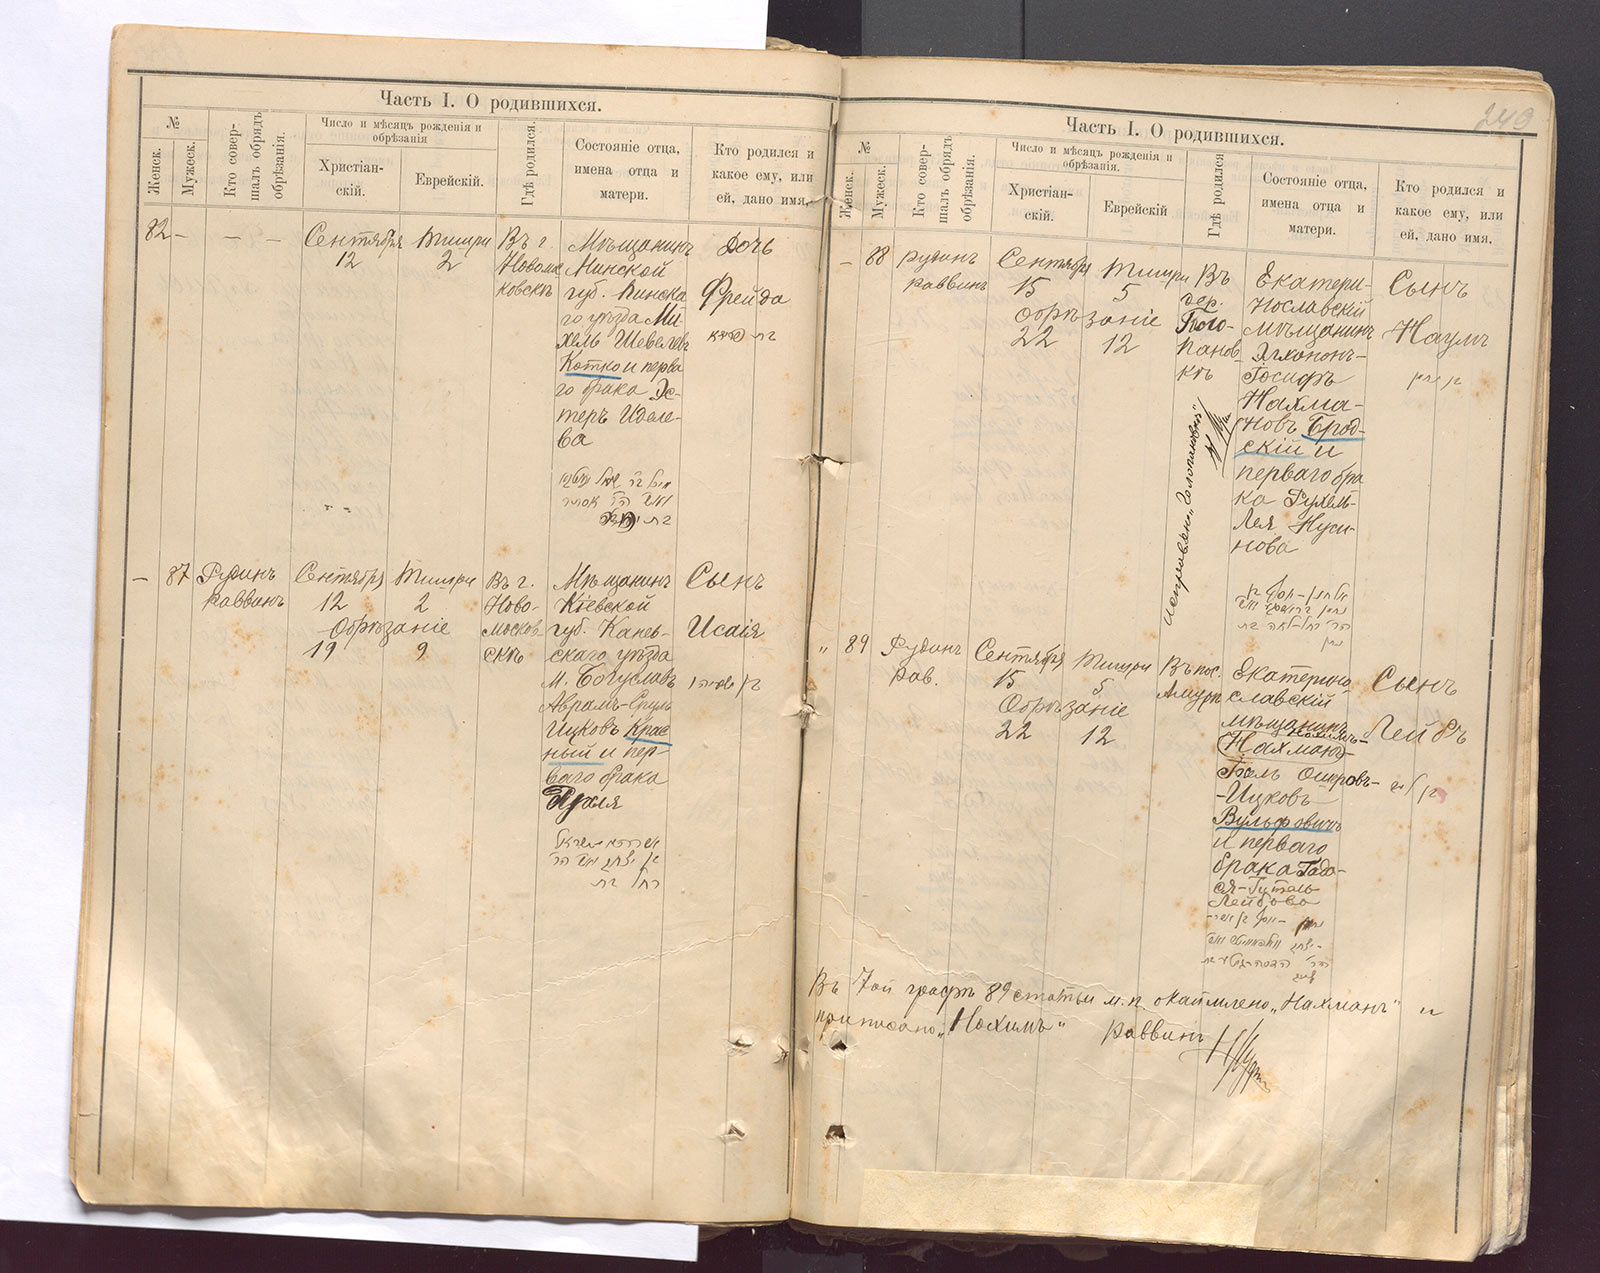 Часть I. О родившихся.
№
Женск.
Мужеск.
Кто совер-
шалъ обрядъ
обрѣзанія.
Число и мѣсяцъ рожденія и
обрѣзанія
Христіан-
скій.
Еврейскій.
Гдѣ родился.
Состояніе отца,
имена отца и
матери.
Кто родился и
какое ему, или
ей, дано имя.
82 — — — —
Сентября
12
Тишри
2
Въ г.
Новомо
ковскѣ
Мѣщанинъ
Минской
губ. Пинска
го уѣзда Ми
хель Шевелевъ
Котко и перва
го брака Эс-
теръ Иделе-
ва
Дочь
Фрейда
— 87
Рудинъ
раввинъ
Сентября
12
Тишри
2
Обрѣзаніе
19 9
Въ г.
Ново-
москов-
скѣ
Мѣщанинъ
Кіевской
губ. Канев-
скаго уѣзда
м. Богуславъ
Аврамъ-Сруль
Ицковъ Крас
ный и пер-
ваго брака
Рухля
Сынъ
Исаія
249
Часть I. О родившихся.
№
Женск.
Мужеск.
Кто совер-
шалъ обрядъ
обрѣзанія.
Число и мѣсяцъ рожденія и
обрѣзанія.
Христіан-
скій.
Еврейскій
Гдѣ родился
Состояніе отца,
имена отца и
матери.
Кто родился и
какое ему, или
ей, дано имя.
— 88
Рудинъ
раввинъ
Сентября
15
Тишри
5
Обрѣзаніе
22 12
Въ
дер.
панов-
кѣ
исправлено „Голопановкѣ"
Екатери-
нославскій
мѣщанинъ
Элхононъ-
Іосифъ
Нахма-
новъ Брод-
скій и
перваго бра
ка Рухель-
Лея Нуси-
нова
Сынъ
Наумъ
" 89
Рудинъ
рав.
Сентября
15
Тишри
5
Обрѣзаніе
22 12
Въ пос.
Амурѣ
Екатерино-
славскій
мѣщанинъ
Нохимъ-
Нахманъ-
Ошеровъ-
-Ицковъ
Вульфовичъ
и перваго
брака Гадо-
ся-Гутель
Лейбова
Сынъ
Лейбъ
Въ 7ой графѣ 89 статьи м.п. окаймлено „Нахманъ" и
приписано „Нохимъ" раввинъ